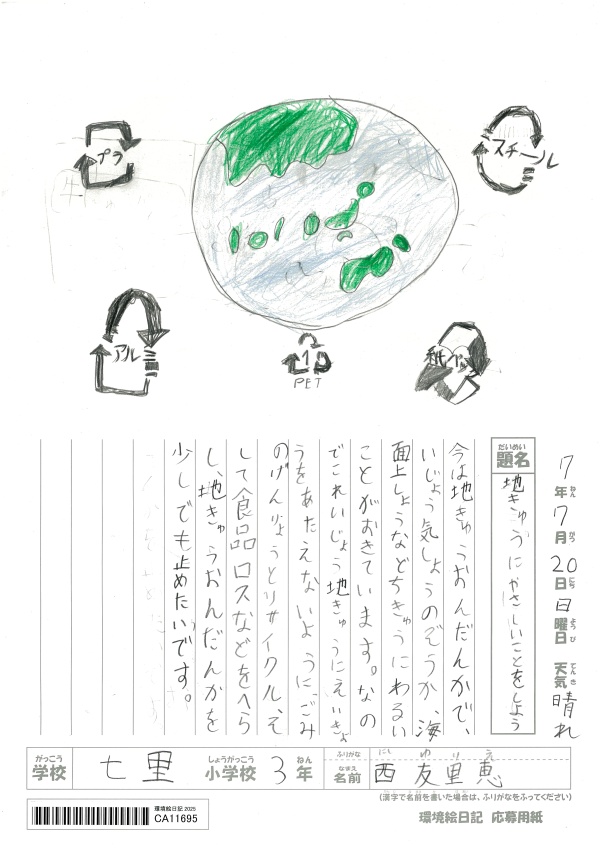 プラ
スチール
アルミ
1
PET
紙パック
7年7月20日日曜日 天気晴れ
ねん がつ にち ようび てんき
だいめい
題名
地きゅうにやさしいことをしよう
今は地きゅうおんだんかで、
いじょう気しょうのぞうか、海
面上しょうなどちきゅうにわるい
ことがおきています。なの
でこれいじょう地きゅうにえいきょ
うをあたえないように、ごみ
のげんりょうとリサイクル、そ
して食品ロスなどをへら
し、地きゅうおんだんかを
少しでも止めたいです。
がっこう
学校
七里
しょうがっこう
小学校
3
ねん
年
ふりがな
にし ゆ り え
なまえ
名前
西 友里恵
(漢字で名前を書いた場合は、ふりがなをふってください)
環境絵日記 2025
CA11695
環境絵日記 応募用紙